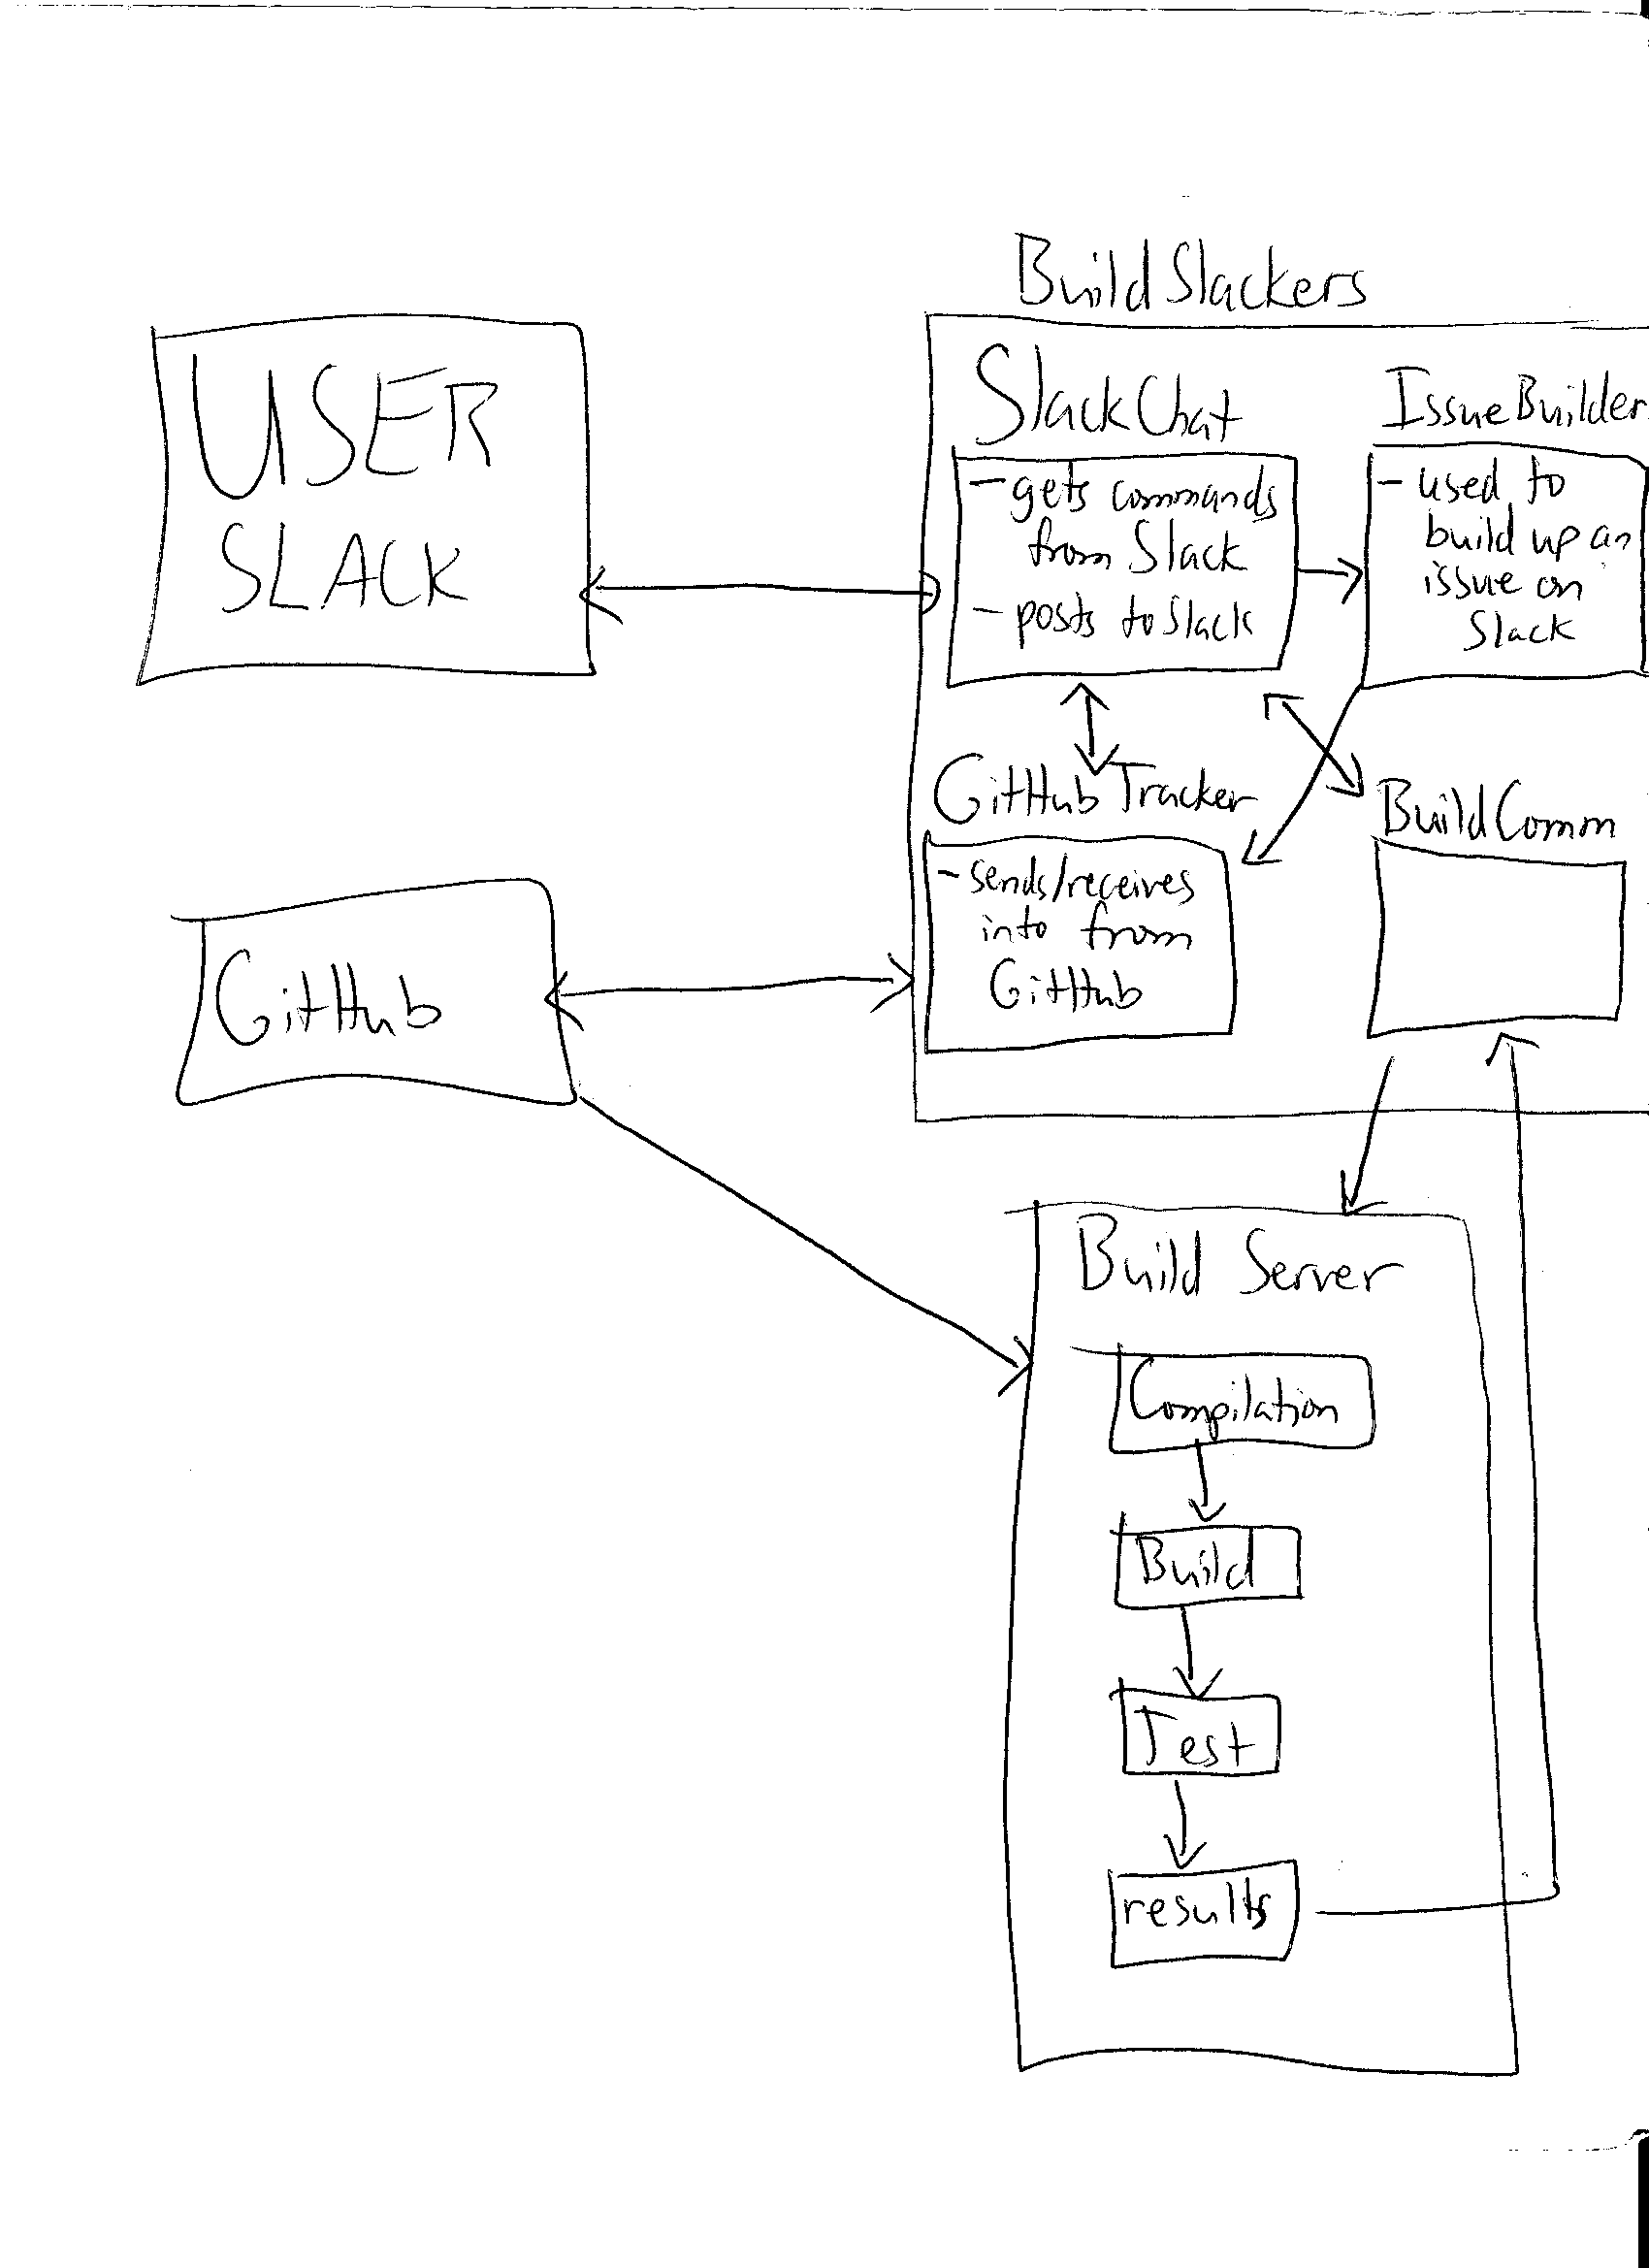 BuildSlackers
USER
SLACK
SlackChat
- gets commands
from Slack
- posts to Slack
IssueBuilder
- used to
build up an
issue on
Slack
GitHub Tracker
- sends/receives
info from
GitHub
BuildComm
GitHub
Build Server
Compilation
Build
Test
results